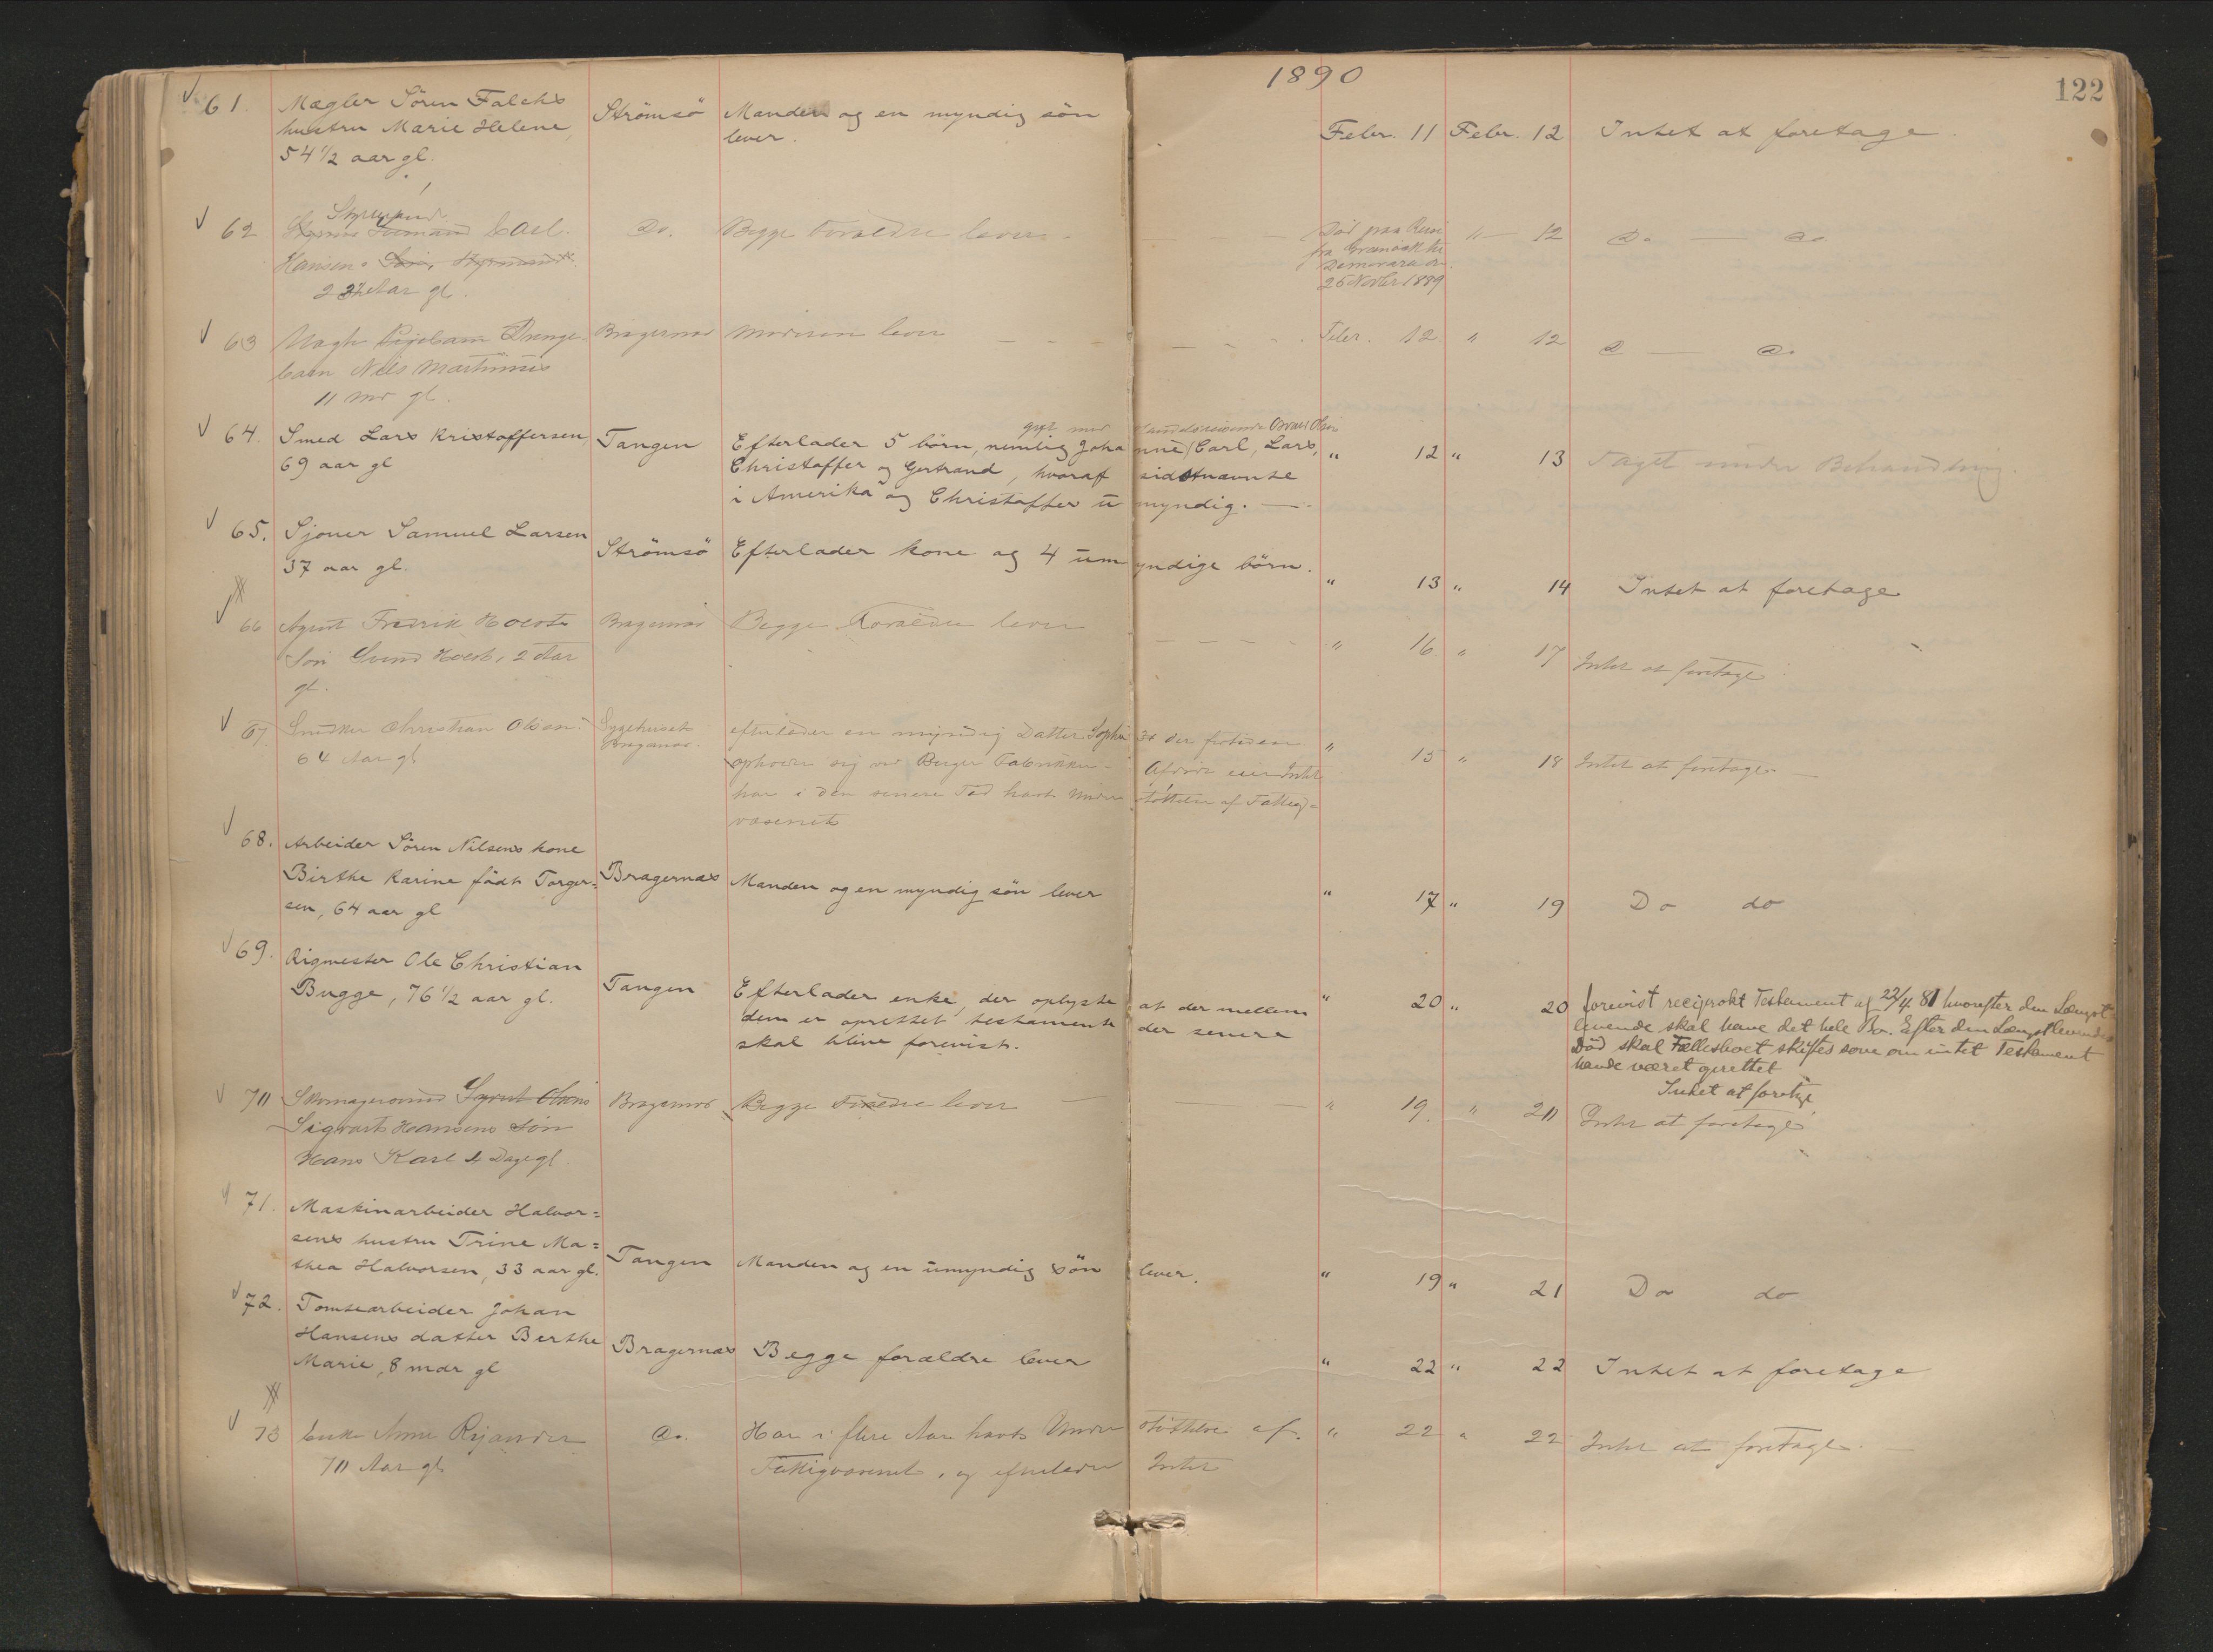 1890
122
61. Mægler Sören Falchs
hustru Marie Helene,
54 1/2 aar gl.
Strömsö
Manden og en myndig sön
lever.
Febr. 11 Febr. 12 Intet at foretage
62 Styrmand
Carl
Hansen
Aar gl.
Do.
Begge Forældre lever.
Død paa Reise
fra
Demerara den
25 Novbr 1889
" 12 Do Do.
63 Drenge-
barn Nils Martinius
11 Md gl.
Bragernæs
Moderen lever
Febr. 12 " 12 Do Do.
64. Smed Lars Kristoffersen,
69 aar gl
Tangen
gift med Handelsreisende Olsen
Efterlader 5 börn, nemlig Johanne, Carl, Lars,
Christoffer og Gertrand, hvoraf sidstnævnte
i Amerika og Christoffer umyndig.
" 12 " 13 Taget under Behandling.
65. Sjouer Samuel Larsen
37 aar gl.
Strömsö
Efterlader kone og 4 umyndige börn.
" 13 " 14 Intet at foretage
66 Agent Fredrik Holsts
Søn Holst, 2 Aar
gl.
Bragernæs
Begge Forældre lever
" 16. " 17 Intet at foretage
67. Snedker Christian Olsen
64 Aar gl
Sygehuset
Bragernæs.
efterlader en myndig Datter Sophie der fortiden
opholder sig ved Berger Fabrikker. Afdøde eier Intet,
har i den senere Tid havt Understøttelse af Fattig-
væsenet
" 15 " 18 Intet at foretage
68. Arbeider Sören Nilsens kone
Birthe Karine födt Torger=
sen, 64 aar gl
Bragernæs
Manden og en myndig sön lever
" 17 " 19 Do do
69. Rigmester Ole Christian
Bugge, 76 1/2 aar gl.
Tangen
Efterlader enke, der oplyste at der mellem
dem er oprettet testamente der senere
skal blive forevist.
" 20 " 20 forevist reciprokt Testament af 22/4 81 hvorefter den Længst-
levende skal have det hele Bo. Efter den Længstlevendes
Död skal Fællesboet skiftes som om intet Testament
havde været oprettet
Intet at foretage
70 Skomagersvend
Sigvart Hansens Søn
Hans Karl Dage gl.
Bragernæs
Begge Forældre lever
" 19. " 20 Intet at foretage
71. Maskinarbeider Halvor=
sens hustru Trine Ma=
thea Halvorsen, 33 aar gl.
Tangen
Manden og en umyndig sön lever.
" 19 " 21 Do do
72. Tomtearbeider Johan
Hansens datter Berthe
Marie, 8 mdr gl
Bragernæs
Begge forældre lever
" 22 " 22 Intet at foretage
73 Enke Anne Rejander
70 Aar gl.
Do.
Har i flere Aar havt Understøttelse af
Fattigvæsenet, og efterlader Intet
" 22 " 22 Intet at foretage.